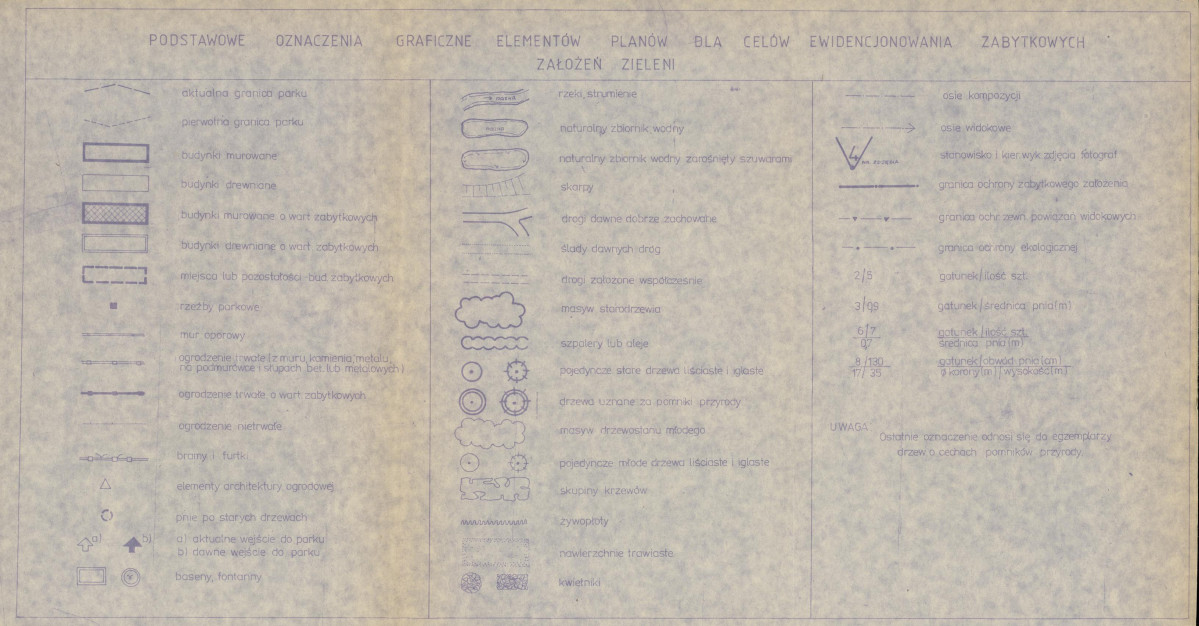 PODSTAWOWE OZNACZENIA GRAFICZNE ELEMENTÓW PLANÓW DLA CELÓW EWIDENCJONOWANIA ZABYTKOWYCH
ZAŁOŻEŃ ZIELENI
aktualna granica parku
pierwotna granica parku
budynki murowane
budynki drewniane
budynki murowane o wart zabytkowych
budynki drewniane o wart. zabytkowych
miejsca lub pozostałości bud. zabytkowych
rzeźby parkowe
mur oporowy
ogrodzenie trwałe (z muru, kamienia, metalu
na podmurówce i słupach bet. lub metalowych)
ogrodzenie trwałe o wart. zabytkowych
ogrodzenie nietrwałe
bramy i furtki
elementy architektury ogrodowej
pnie po starych drzewach
a) b) a) aktualne wejście do parku
b) dawne wejście do parku
baseny, fontanny
rzeki, strumienie
naturalny zbiornik wodny
naturalny zbiornik wodny zarośnięty szuwarami
skarpy
drogi dawne dobrze zachowane
ślady dawnych dróg
drogi założone współcześnie
masyw starodrzewia
szpalery lub aleje
pojedyncze stare drzewa liściaste i iglaste
drzewa uznane za pomniki przyrody
masyw drzewostanu młodego
pojedyncze młode drzewa liściaste i iglaste
skupiny krzewów
żywopłoty
nawierzchnie trawiaste
kwietniki
osie kompozycji
osie widokowe
4 NR ZDJĘCIA stanowisko i kier. wyk zdjęcia fotograf
granica ochrony zabytkowego założenia
granica ochr zewn. powiązań widokowych
granica ochrony ekologicznej
2/5 gatunek/ilość szt.
3/0,9 gatunek/średnica pnia(m)
6/7 gatunek/ilość szt.
0,7 średnica pnia (m)
8/130 gatunek/obwód pnia(cm)
17/35 ø korony(m)/wysokość(m)
UWAGA:
Ostatnie oznaczenie odnosi się do egzemplarzy
drzew o cechach pomników przyrody.